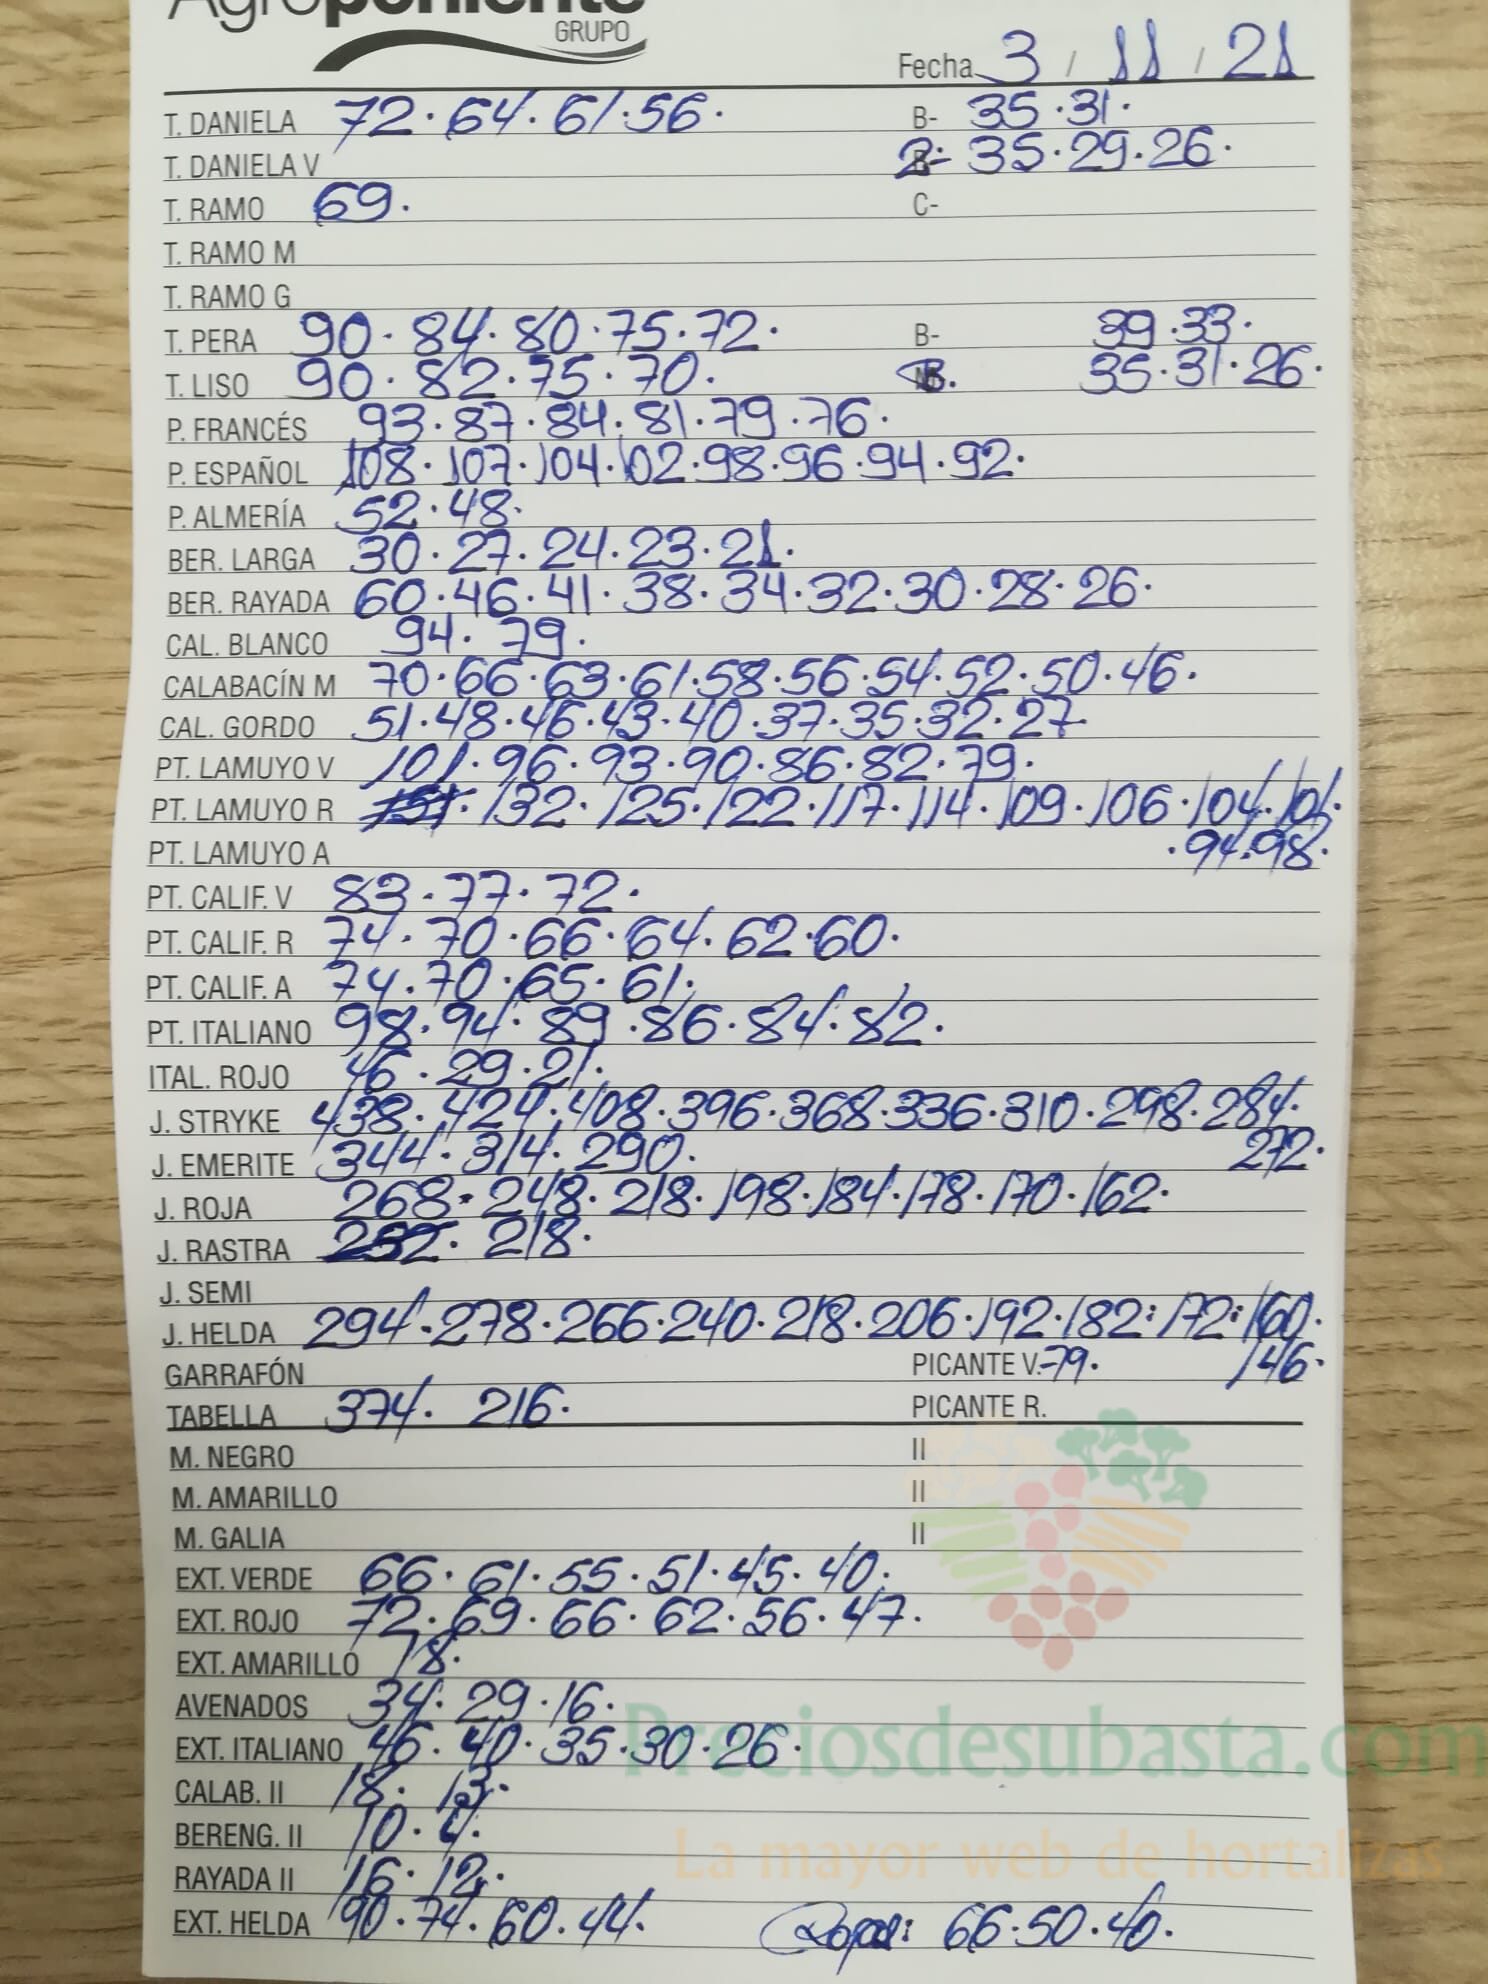 Agroponiente
GRUPO
Fecha 3 / 11 / 21
T. DANIELA 72. 64. 61. 56. B- 35. 31.
T. DANIELA V 2- 35. 29. 26.
T. RAMO 69. C-
T. RAMO M
T. RAMO G
T. PERA 90. 84. 80. 75. 72. B- 39. 33.
T. LISO 90. 82. 75. 70. B. 35. 31. 26.
P. FRANCÉS 93. 87. 84. 81. 79. 76.
P. ESPAÑOL 108. 107. 104. 102. 98. 96. 94. 92.
P. ALMERÍA 52. 48.
BER. LARGA 30. 27. 24. 23. 21.
BER. RAYADA 60. 46. 41. 38. 34. 32. 30. 28. 26.
CAL. BLANCO 94. 79.
CALABACÍN M 70. 66. 63. 61. 58. 56. 54. 52. 50. 46.
CAL. GORDO 51. 48. 46. 43. 40. 37. 35. 32. 27.
PT. LAMUYO V 101. 96. 93. 90. 86. 82. 79.
PT. LAMUYO R 132. 125. 122. 117. 114. 109. 106. 104. 101.
PT. LAMUYO A . 94. 98.
PT. CALIF. V 83. 77. 72.
PT. CALIF. R 74. 70. 66. 64. 62. 60.
PT. CALIF. A 74. 70. 65. 61.
PT. ITALIANO 98. 94. 89. 86. 84. 82.
ITAL. ROJO 46. 29. 21.
J. STRYKE 438. 424. 408. 396. 368. 336. 310. 298. 284.
J. EMERITE 344. 314. 290. 272.
J. ROJA 268. 248. 218. 198. 184. 178. 170. 162.
J. RASTRA 218.
J. SEMI
J. HELDA 294. 278. 266. 240. 218. 206. 192. 182. 172. 160.
GARRAFÓN PICANTE V. 79. 146.
TABELLA 374. 216. PICANTE R.
M. NEGRO II
M. AMARILLO II
M. GALIA II
EXT. VERDE 66. 61. 55. 51. 45. 40.
EXT. ROJO 72. 69. 66. 62. 56. 47.
EXT. AMARILLO 78.
AVENADOS 34. 29. 16.
EXT. ITALIANO 46. 40. 35. 30. 26.
Preciosdesubasta.com
CALAB. II 18. 13.
BERENG. II 10. 4.
La mayor web de hortalizas
RAYADA II 16. 12.
EXT. HELDA 90. 74. 60. 44. 66. 50. 40.